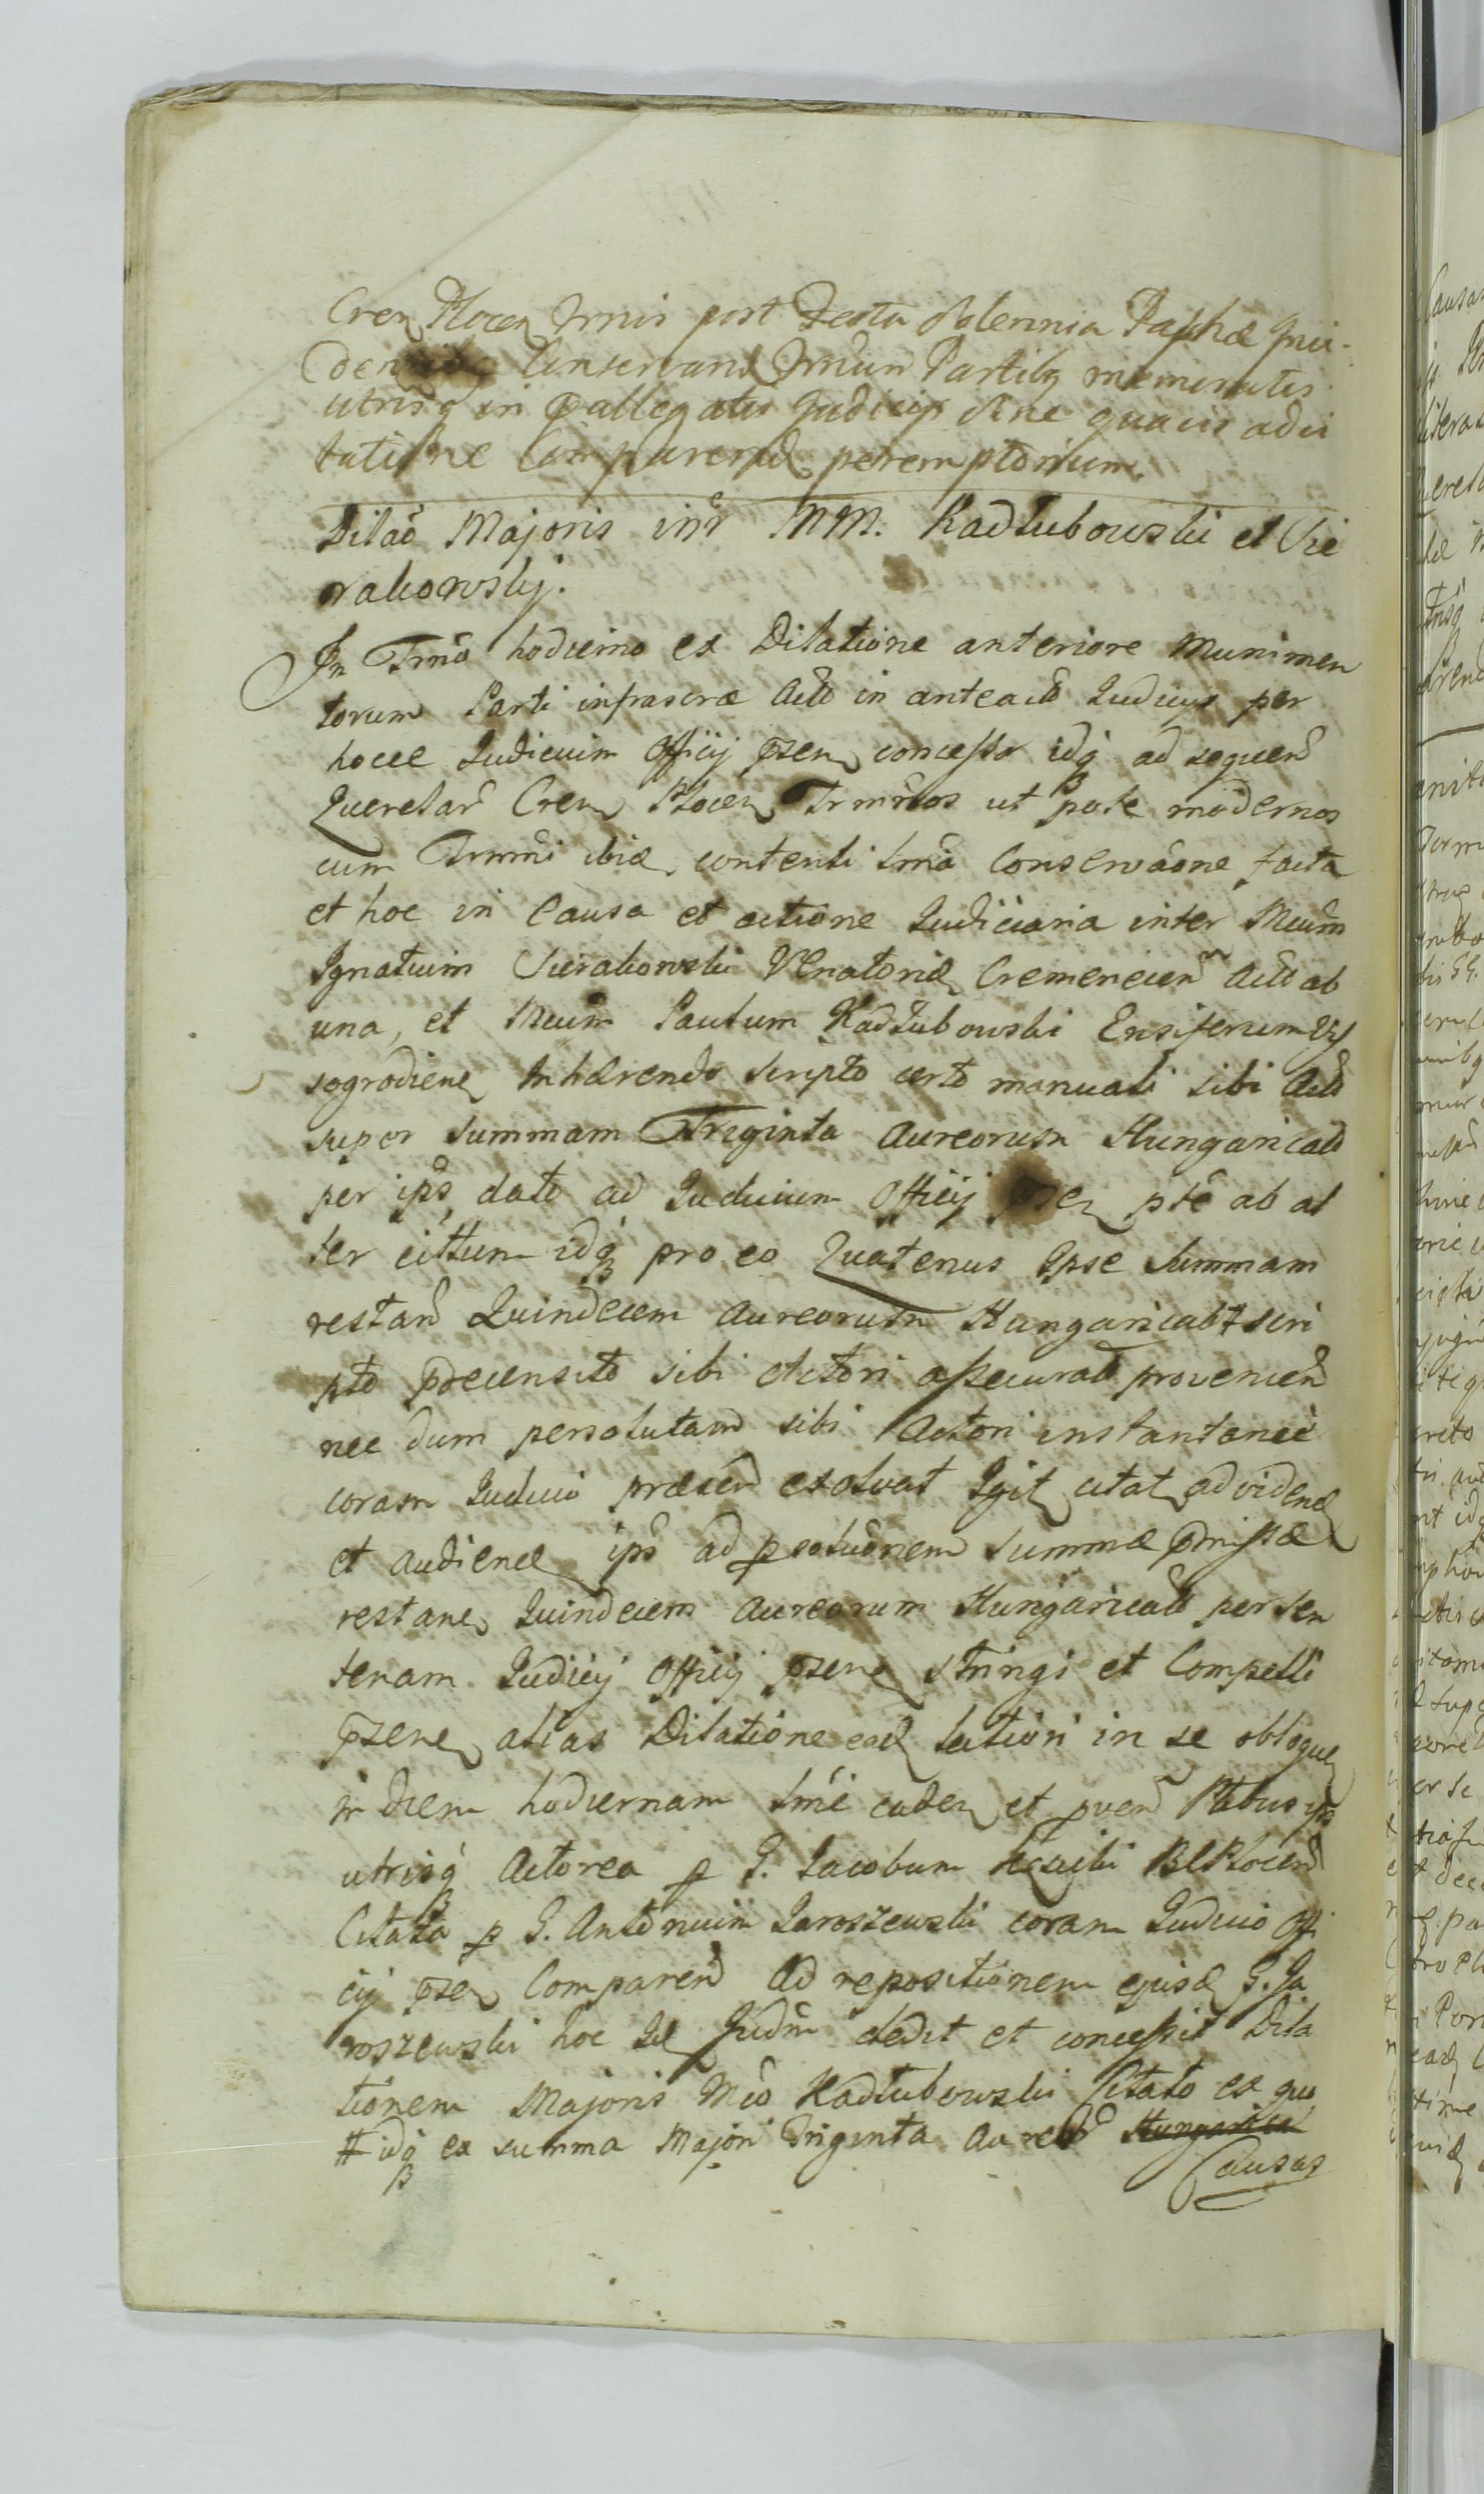 Cren Plocen Trmis post Festa Solennia Paschæ
Conservand Trmum Partibq memoratis
utrisq in Pallegatis Judicijs sine quavis adci
tatione Comparend peremptorium.
Dilaõ Majoris intr MM. Kadłubowski et Sie
rakowskij.
In Trmõ hodierno ex Dilatione anteriore Munimen
torum Parti infrascræ Actõ in anteactõ Judicijs per
hocce Judicium Officij pzen concesso idq ad sequend
Querelar Cren Plocen Trmĩnos ut pote modernos
cum Trmĩni ibid contenti Smã Conservãone facta
et hoc in Causa et actione Judiciaria inter Mcum
Ignatium Sierakowski Venatorid Cremenecien Actõ ab
una, et Mcum Paulum Kadłubowski Ensiferum Vis
sogrodiene Inhærendo scripto certo manuali sibi Actõ
super summam Triginta Aureorum Hungaricalõ
per ips dato ad Judicium Officij pzen pte ab al
ter cittum idq pro eo Quatenus Ipse Summam
restand Quindecem Aureorum Hungaricalõ # scri
pto præcensito sibi Actori assecuratõ provenien
nec dum persolutam sibi Actori instantanee
coram Judicio præsend exolvat Igit citat ad videnđ
et audiend ips ad psolucõnem Summæ pmissæ
restane Quindecem Aureorum Hungaricalõ per Sen
tenam Judicij Officij pzene Stringi et Compelli
pzene alias Dilatione ead latiori in se obloquen
in diem hodiernam Smẽ caden et pven Ptibus ips
utrisq Actorea p G. Jacobum BCPlocend
Citata p G. Antonium Jaroszewski coram Judicio Offi
cij pzen Comparend Ad repositionem ejusd G. Ja
roszewski hoc Id Judm dedit et concessit Dila
tionem Majoris Mcõ Kadłubowski Citato ex quo
# idq ex summa Majori Triginta Aureorõ Hungarical
Causas